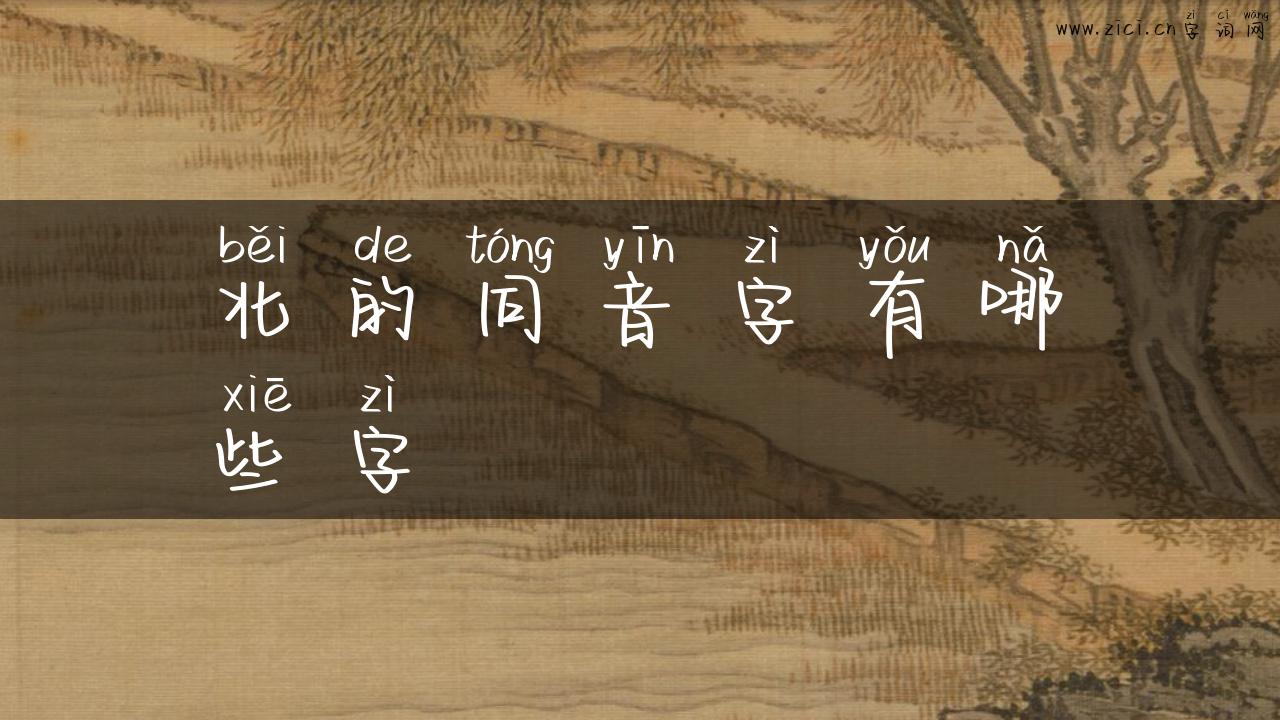 zì cí wǎng
www.zici.cn字词网
běi de tóng yīn zì yǒu nǎ
北的同音字有哪
xiē zì
些字